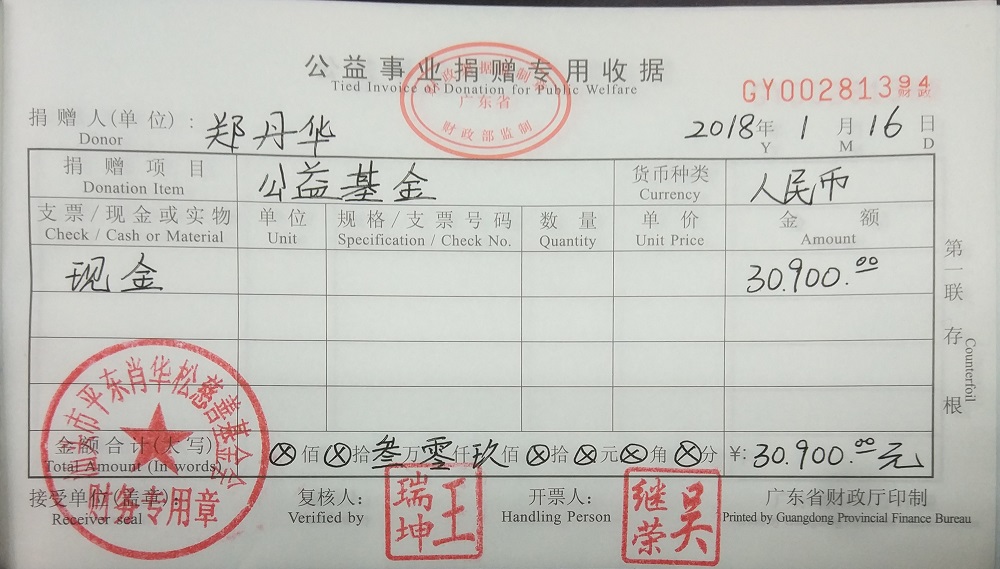 公益事业捐赠专用收据
Tied Invoice of Donation for Public Welfare
广东省
财政部监制
GY00281394
财政
捐赠人(单位)：郑丹华
Donor
2018年1月16日
Y M D
捐赠项目 公益基金 货币种类 人民币
Donation Item Currency
支票/现金或实物 单位 规格/支票号码 数量 单价 金额
Check / Cash or Material Unit Specification / Check No. Quantity Unit Price Amount
现金 30.900.00
第一联存根
Counterfoil
金额合计(大写) ⊗佰⊗拾叁万零仟玖佰⊗拾⊗元⊗角⊗分 ¥: 30.900.00元
Total Amount (In words)
接受单位(盖章)： 复核人： 开票人： 广东省财政厅印制
Receiver seal Verified by Handling Person Printed by Guangdong Provincial Finance Bureau
市平东肖华松慈善基金会
财务专用章
王瑞坤
吴继荣